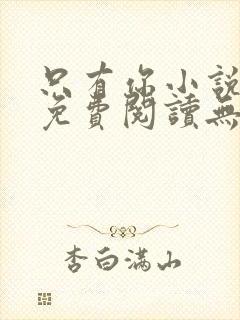 只有你小說
免費閱讀無
李白滿山